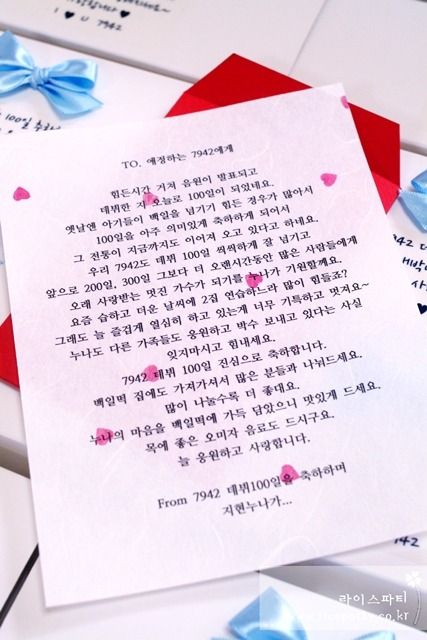 사랑합니다 ♥
I ♥ U 7942
100일
TO. 애정하는 7942에게
힘든시간 거쳐 음원이 발표되고
데뷔한 지 오늘로 100일이 되었네요.
옛날엔 아기들이 백일을 넘기기 힘든 경우가 많아서
100일을 아주 의미있게 축하하게 되어서
그 전통이 지금까지도 이어져 오고 있다고 하네요.
우리 7942도 데뷔 100일 씩씩하게 잘 넘기고
앞으로 200일, 300일 그보다 더 오랜시간동안 많은 사람들에게
오래 사랑받는 멋진 가수가 되기를 누나가 기원할께요.
요즘 습하고 더운 날씨에 2집 연습하느라 많이 힘들죠?
그래도 늘 즐겁게 열심히 하고 있는게 너무 기특하고 멋져요~
누나도 다른 가족들도 응원하고 박수 보내고 있다는 사실
잊지마시고 힘내세요.
7942 데뷔 100일 진심으로 축하합니다.
백일떡 집에도 가져가셔서 많은 분들과 나눠드세요.
많이 나눌수록 더 좋대요.
누나의 마음을 백일떡에 가득 담았으니 맛있게 드세요.
목에 좋은 오미자 음료도 드시구요.
늘 응원하고 사랑합니다.
From 7942 데뷔100일을 축하하며
지현누나가...
7942
942
라이스파티